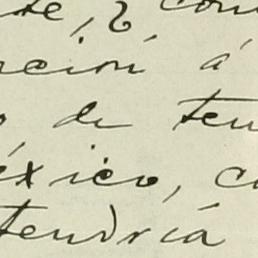 te, y con
nción á
o de ten
éxico, c
tendría